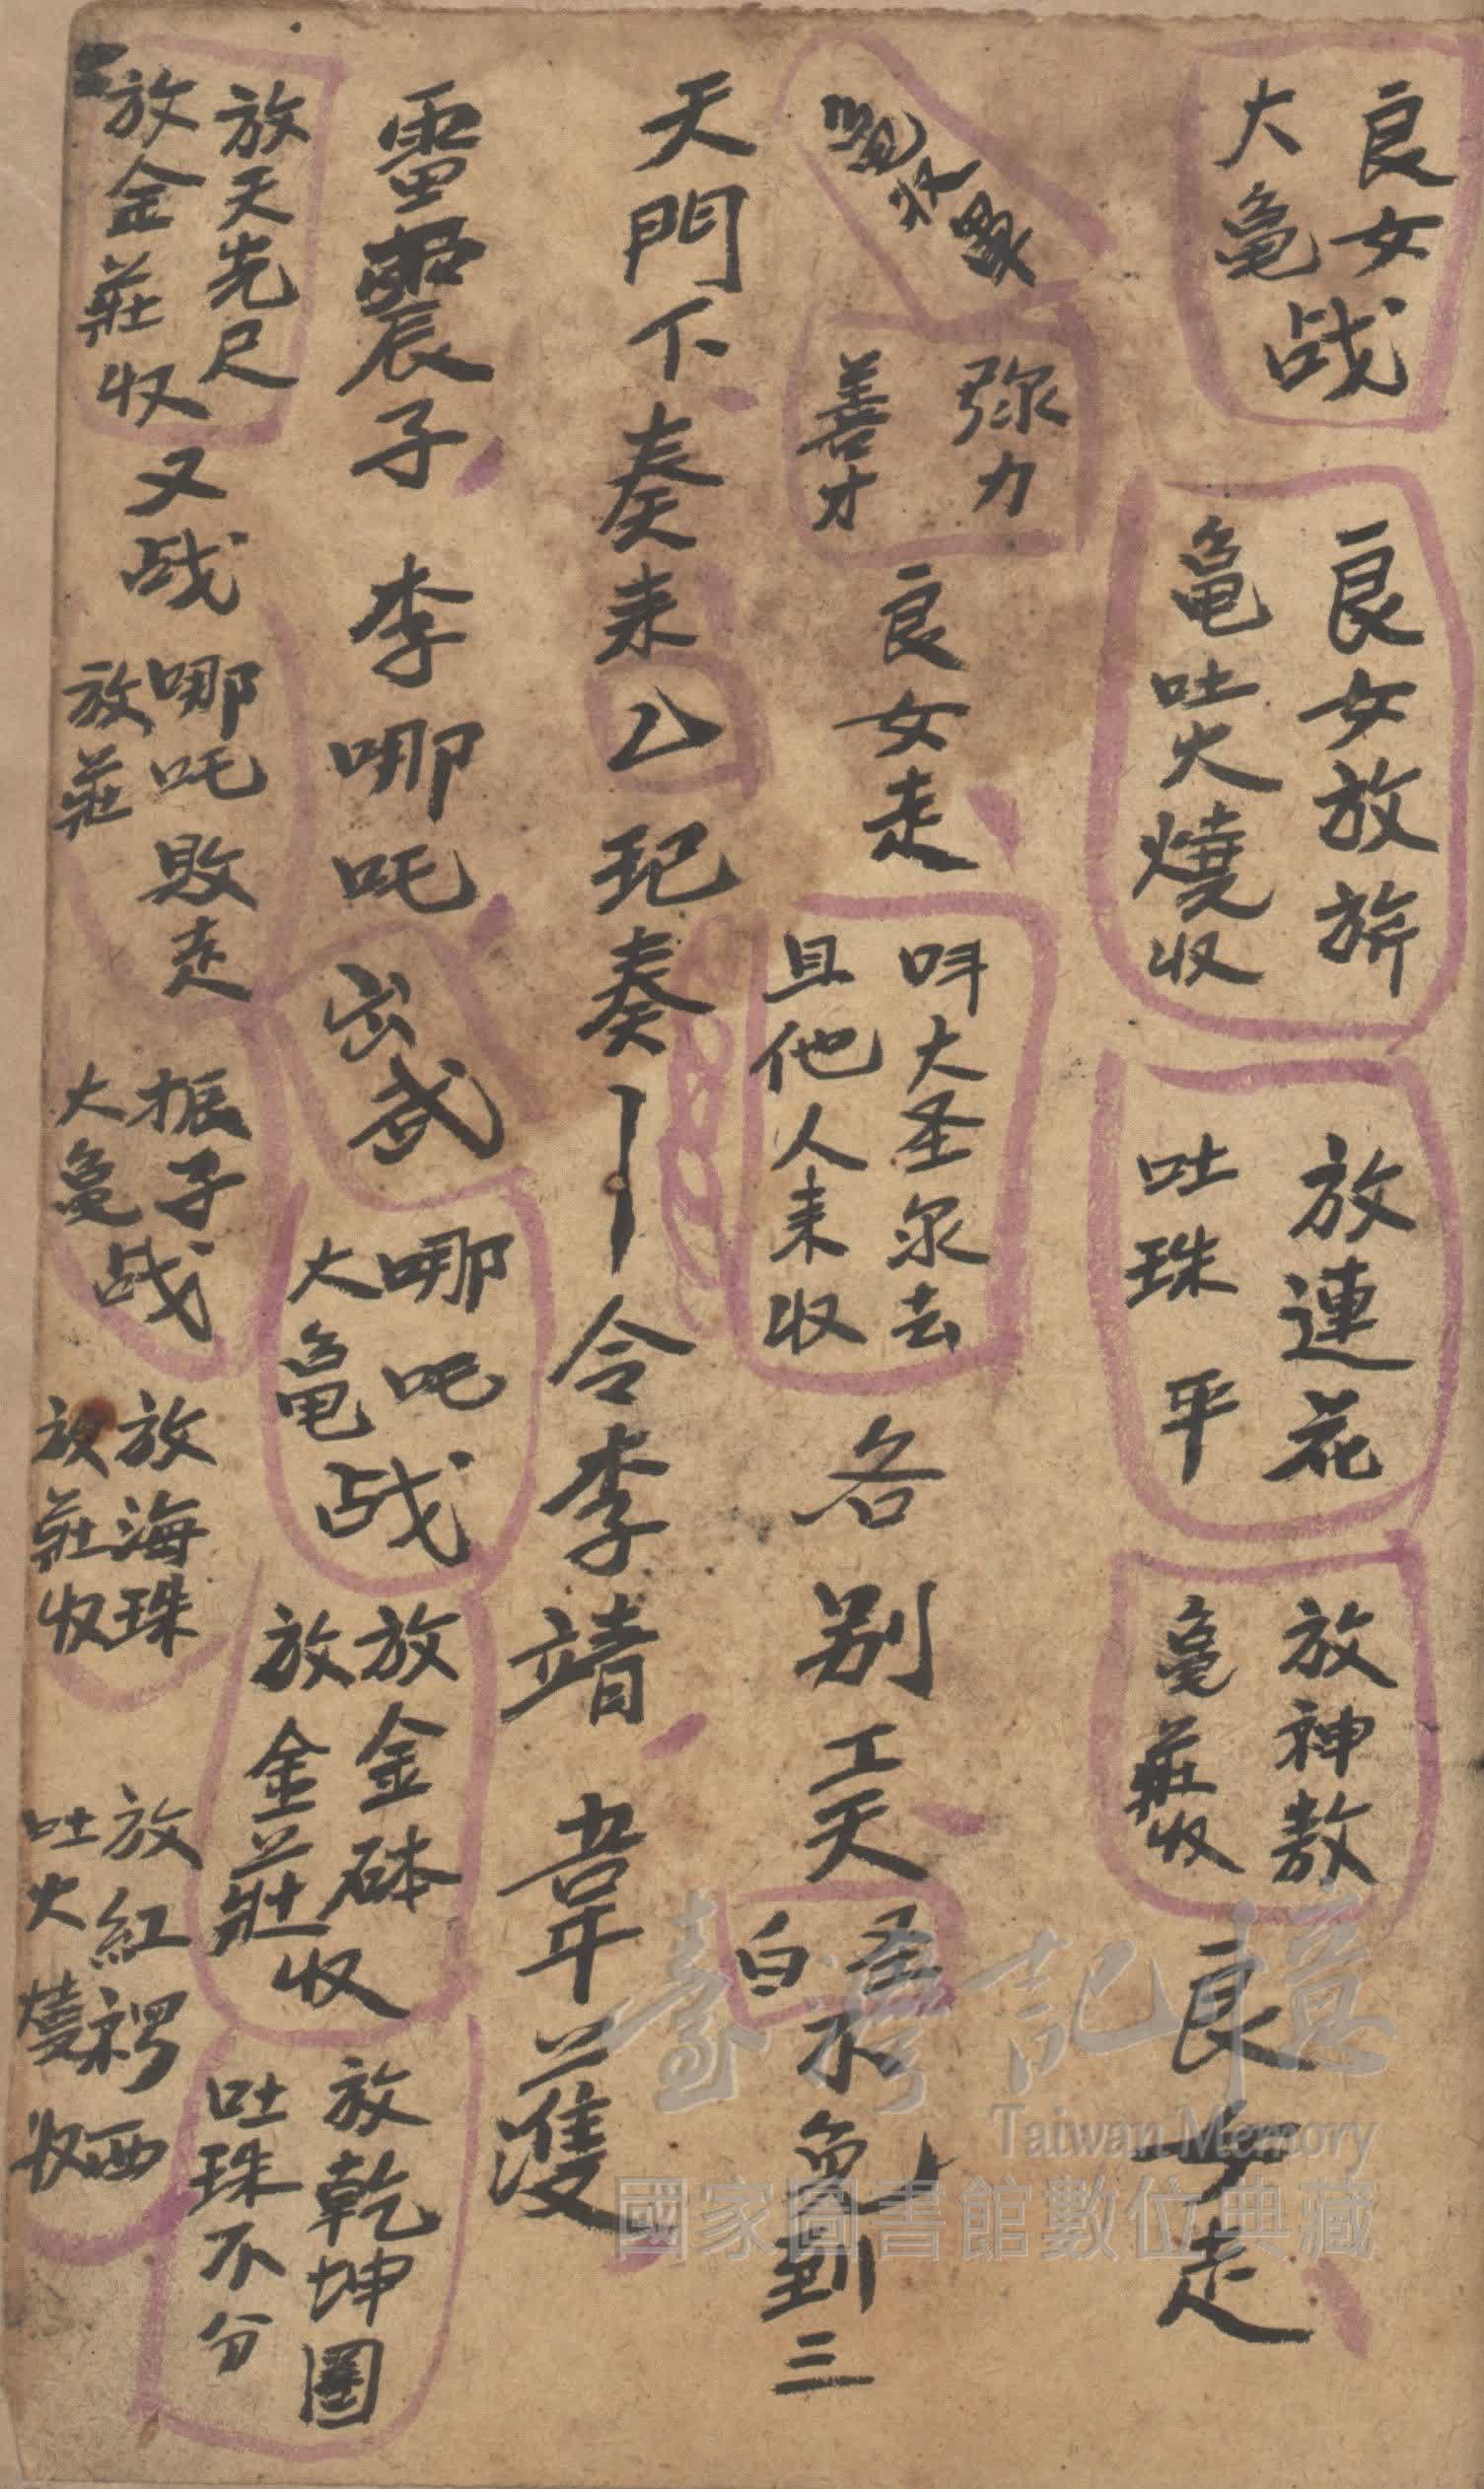 良女
大亀
战
良女放旂
亀吐火燒
收
放連花
吐珠平
放神敖
亀莊收
良女走
亀收
弥力
善才
良女走
叫大圣汆去
且他人来收
各别
工天
圣
白
水
到三
天門下奏来
乙
玘奏
令李靖
韋護
雷震子
李哪吒
出武
哪吒
大亀
战
放金砵
放金莊
收
放乾坤圈
吐珠不分
放天先尺
放金莊
收
又战
哪吒敗走
放莊
振子
大亀
战
放海珠
放莊收
放紅
西
吐火
收
臺灣記憶
Taiwan Memory
國家圖書館數位典藏